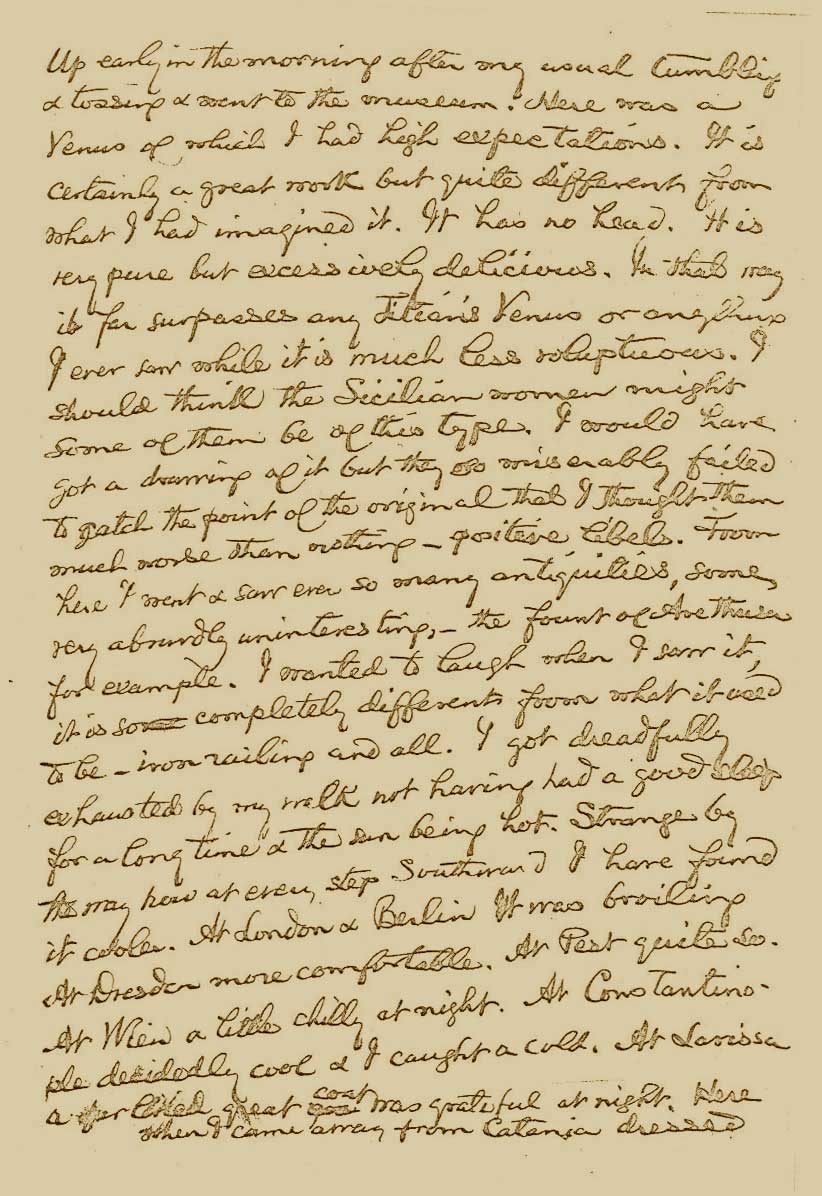 Up early in the morning after my usual tumbling
& tossing & went to the museum. Here was a
Venus of which I had high expectations. It is
certainly a great work but quite different from
what I had imagined it. It has no head. It is
very pure but excessively delicious. In that way
it far surpasses any Titian's Venus or anything
I ever saw while it is much less voluptuous. I
should think the Sicilian women might
some of them be of this type. I would have
got a drawing of it but they so miserably failed
to catch the point of the original that I thought them
much worse than nothing – positive libels. From
here I went & saw ever so many antiquities, some,
very absurdly uninteresting, – the fount of Arethusa
for example. I wanted to laugh when I saw it,
it is so completely different from what it used
to be – iron railing and all. I got dreadfully
exhausted by my walk not having had a good sleep
for a long time & the sun being hot. Strange by
the way how at every step Southward I have found
it cooler. At London & Berlin It was broiling
At Dresden more comfortable. At Pest quite so.
At Wien a little chilly at night. At Constantino-
ple decidedly cool & I caught a cold. At Larissa
a fur lined great coat was grateful at night. Here
when I came away from Catania dressed